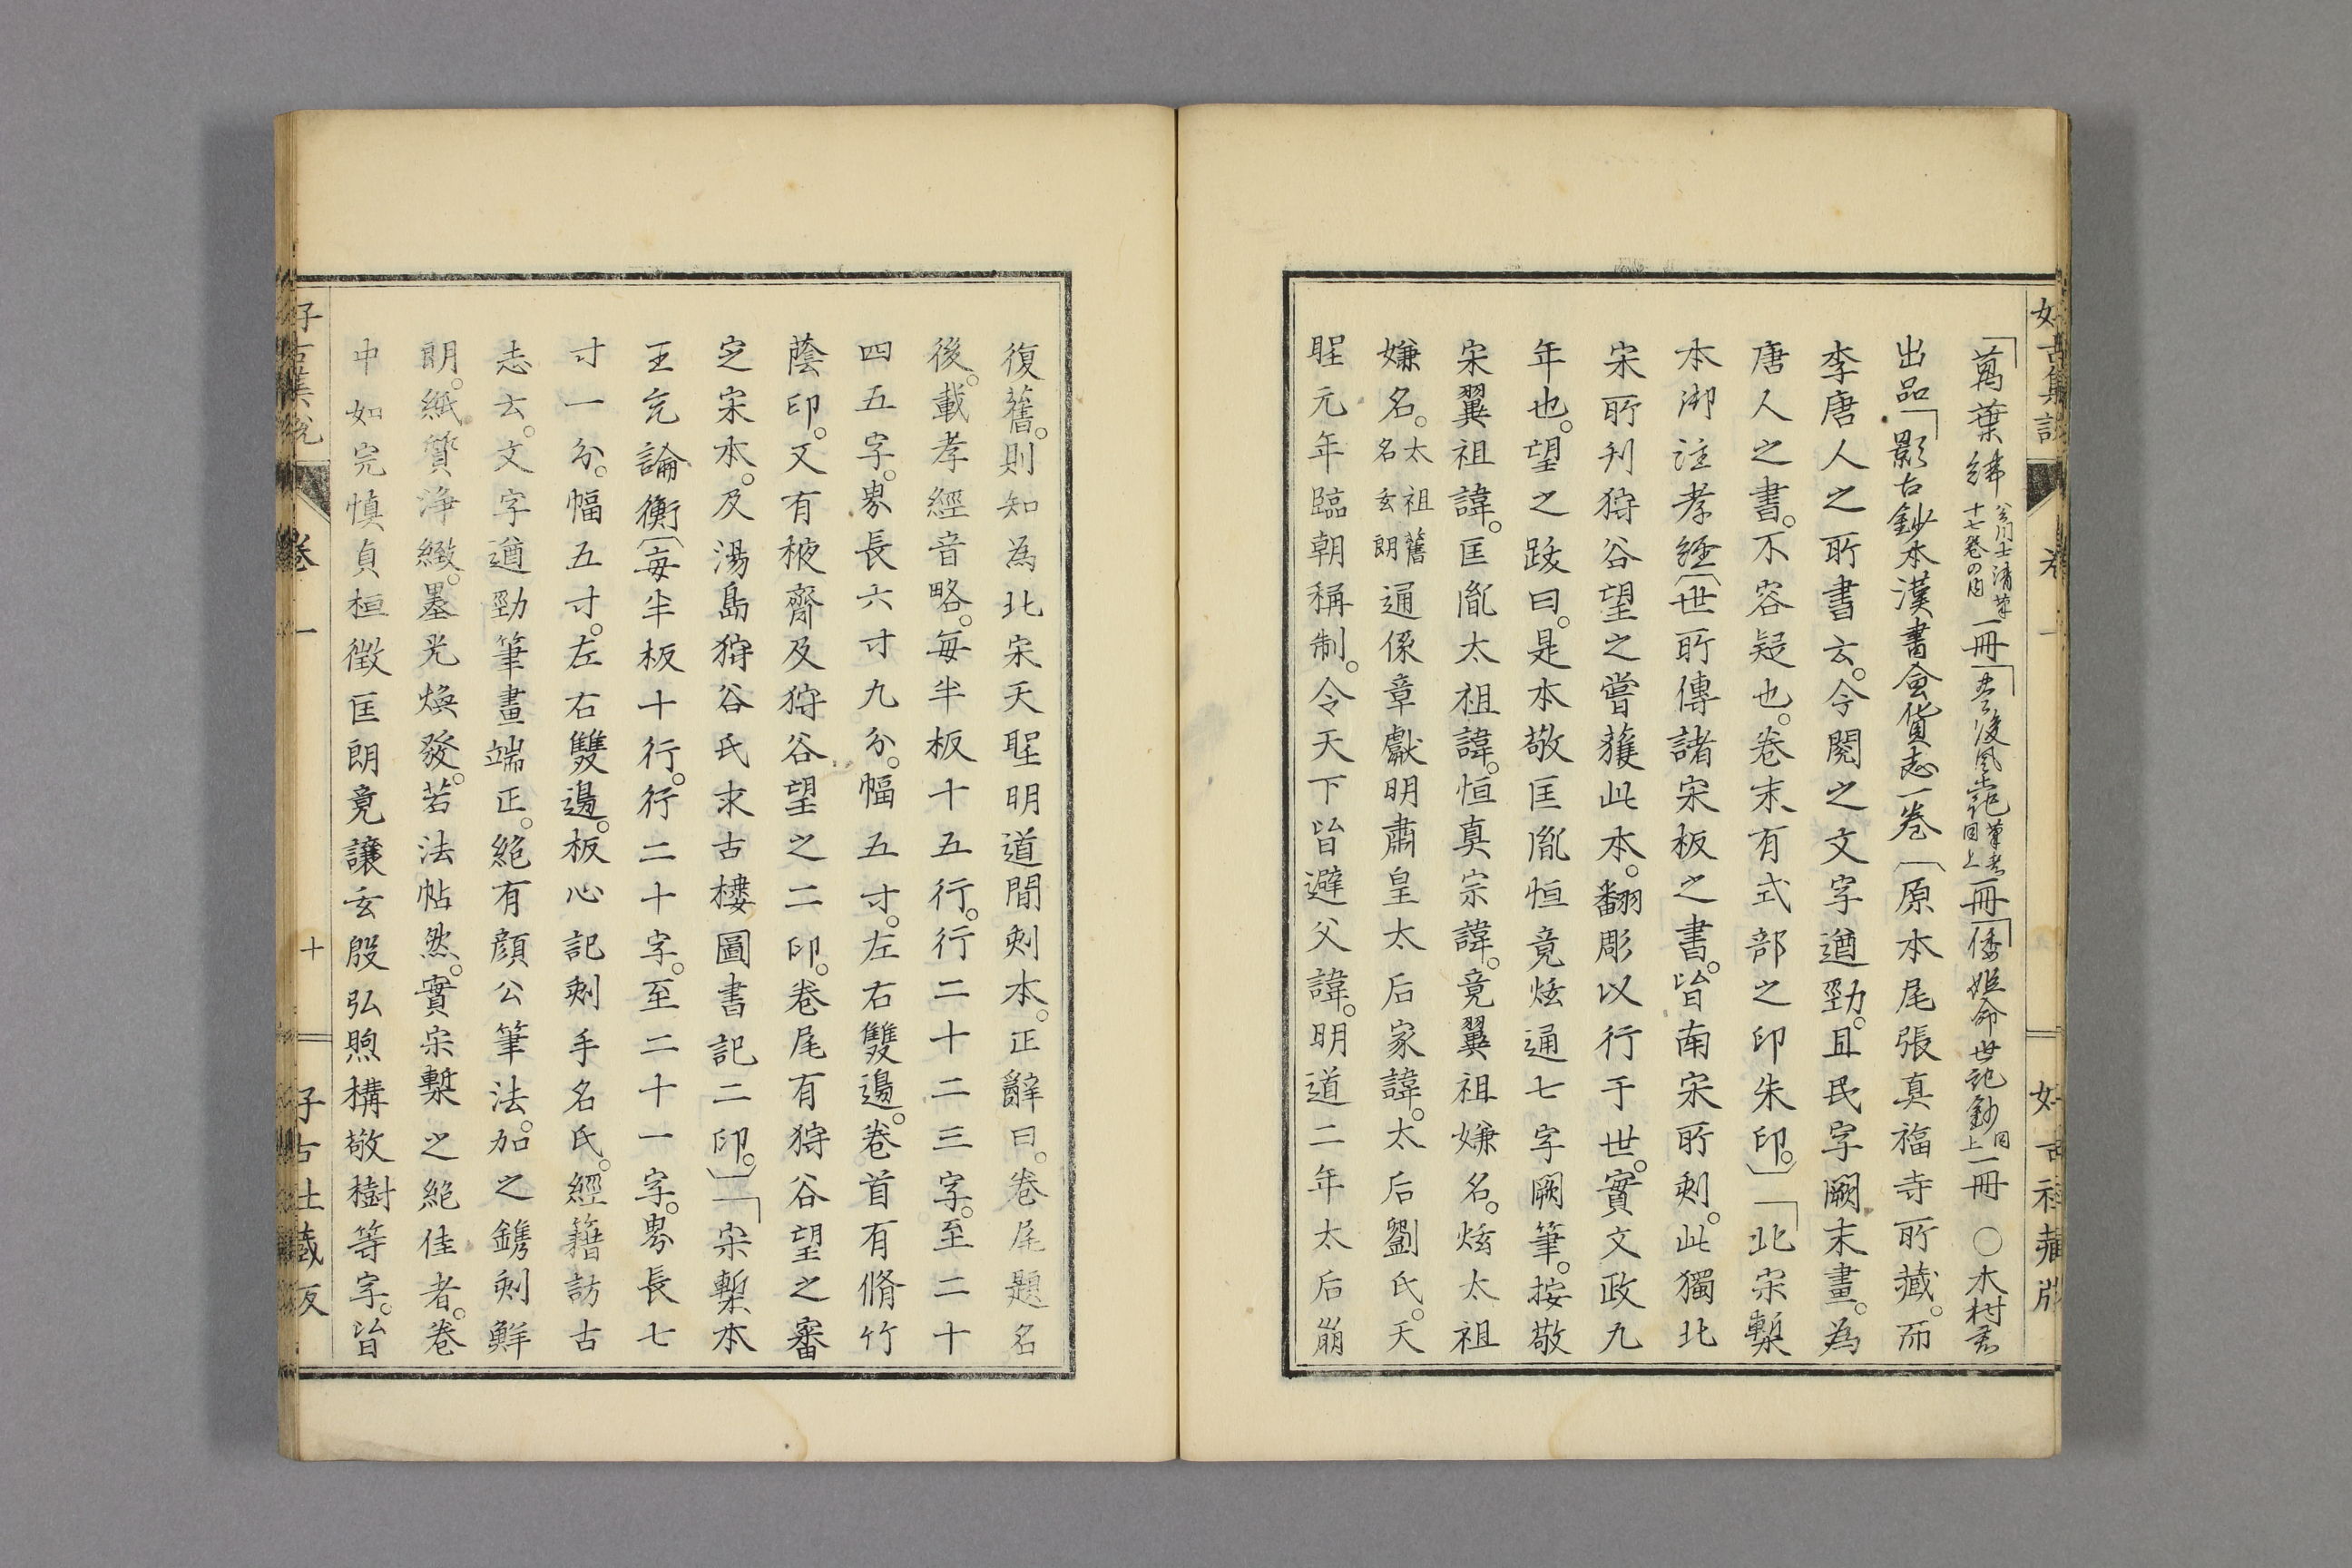 好古集說
卷一
好古社藏版
「萬葉緯 公門士清筆 十七卷の內 一冊「豊後風土記 筆者同上 一冊「倭姬命世記鈔 同上 一冊 ○木村君
出品「影古鈔本漢書食貨志一卷〔原本尾張真福寺所藏。而
李唐人之所書云。今閱之文字遒勁。且民字闕末畫。為
唐人之書。不容疑也。卷末有式部之印朱印。〕「北宋槧
本御注孝經〔世所傳諸宋板之書。皆南宋所刻。此獨北
宋所刋狩谷望之嘗獲此本。翻彫以行于世。實文政九
年也。望之跋曰。是本敬匡胤恒竟炫通七字闕筆。按敬
宋翼祖諱。匡胤太祖諱。恒真宗諱。竟翼祖嫌名。炫太祖
嫌名。太祖舊名玄朗 通係章獻明肅皇太后家諱。太后劉氏。天
聖元年臨朝稱制。令天下皆避父諱。明道二年太后崩
復舊。則知為北宋天聖明道間刻本。正辭曰。卷尾題名
後。載孝經音略。每半板十五行。行二十二三字。至二十
四五字。界長六寸九分。幅五寸。左右雙邊。卷首有脩竹
蔭印。又有棭齋及狩谷望之二印。卷尾有狩谷望之審
定宋本。及湯島狩谷氏求古樓圖書記二印。〕「宋槧本
王充論衡〔每半板十行。行二十字。至二十一字。界長七
寸一分。幅五寸。左右雙邊。板心記刻手名氏。經籍訪古
志云。文字遒勁筆畫端正。絕有顏公筆法。加之鐫刻鮮
朗。紙質淨緻。墨光煥發。若法帖然。實宋槧之絕佳者。卷
中如完慎貞桓徵匡朗竟讓玄殷弘煦構敬樹等字。皆
好古集說
卷一
十
好古社藏版